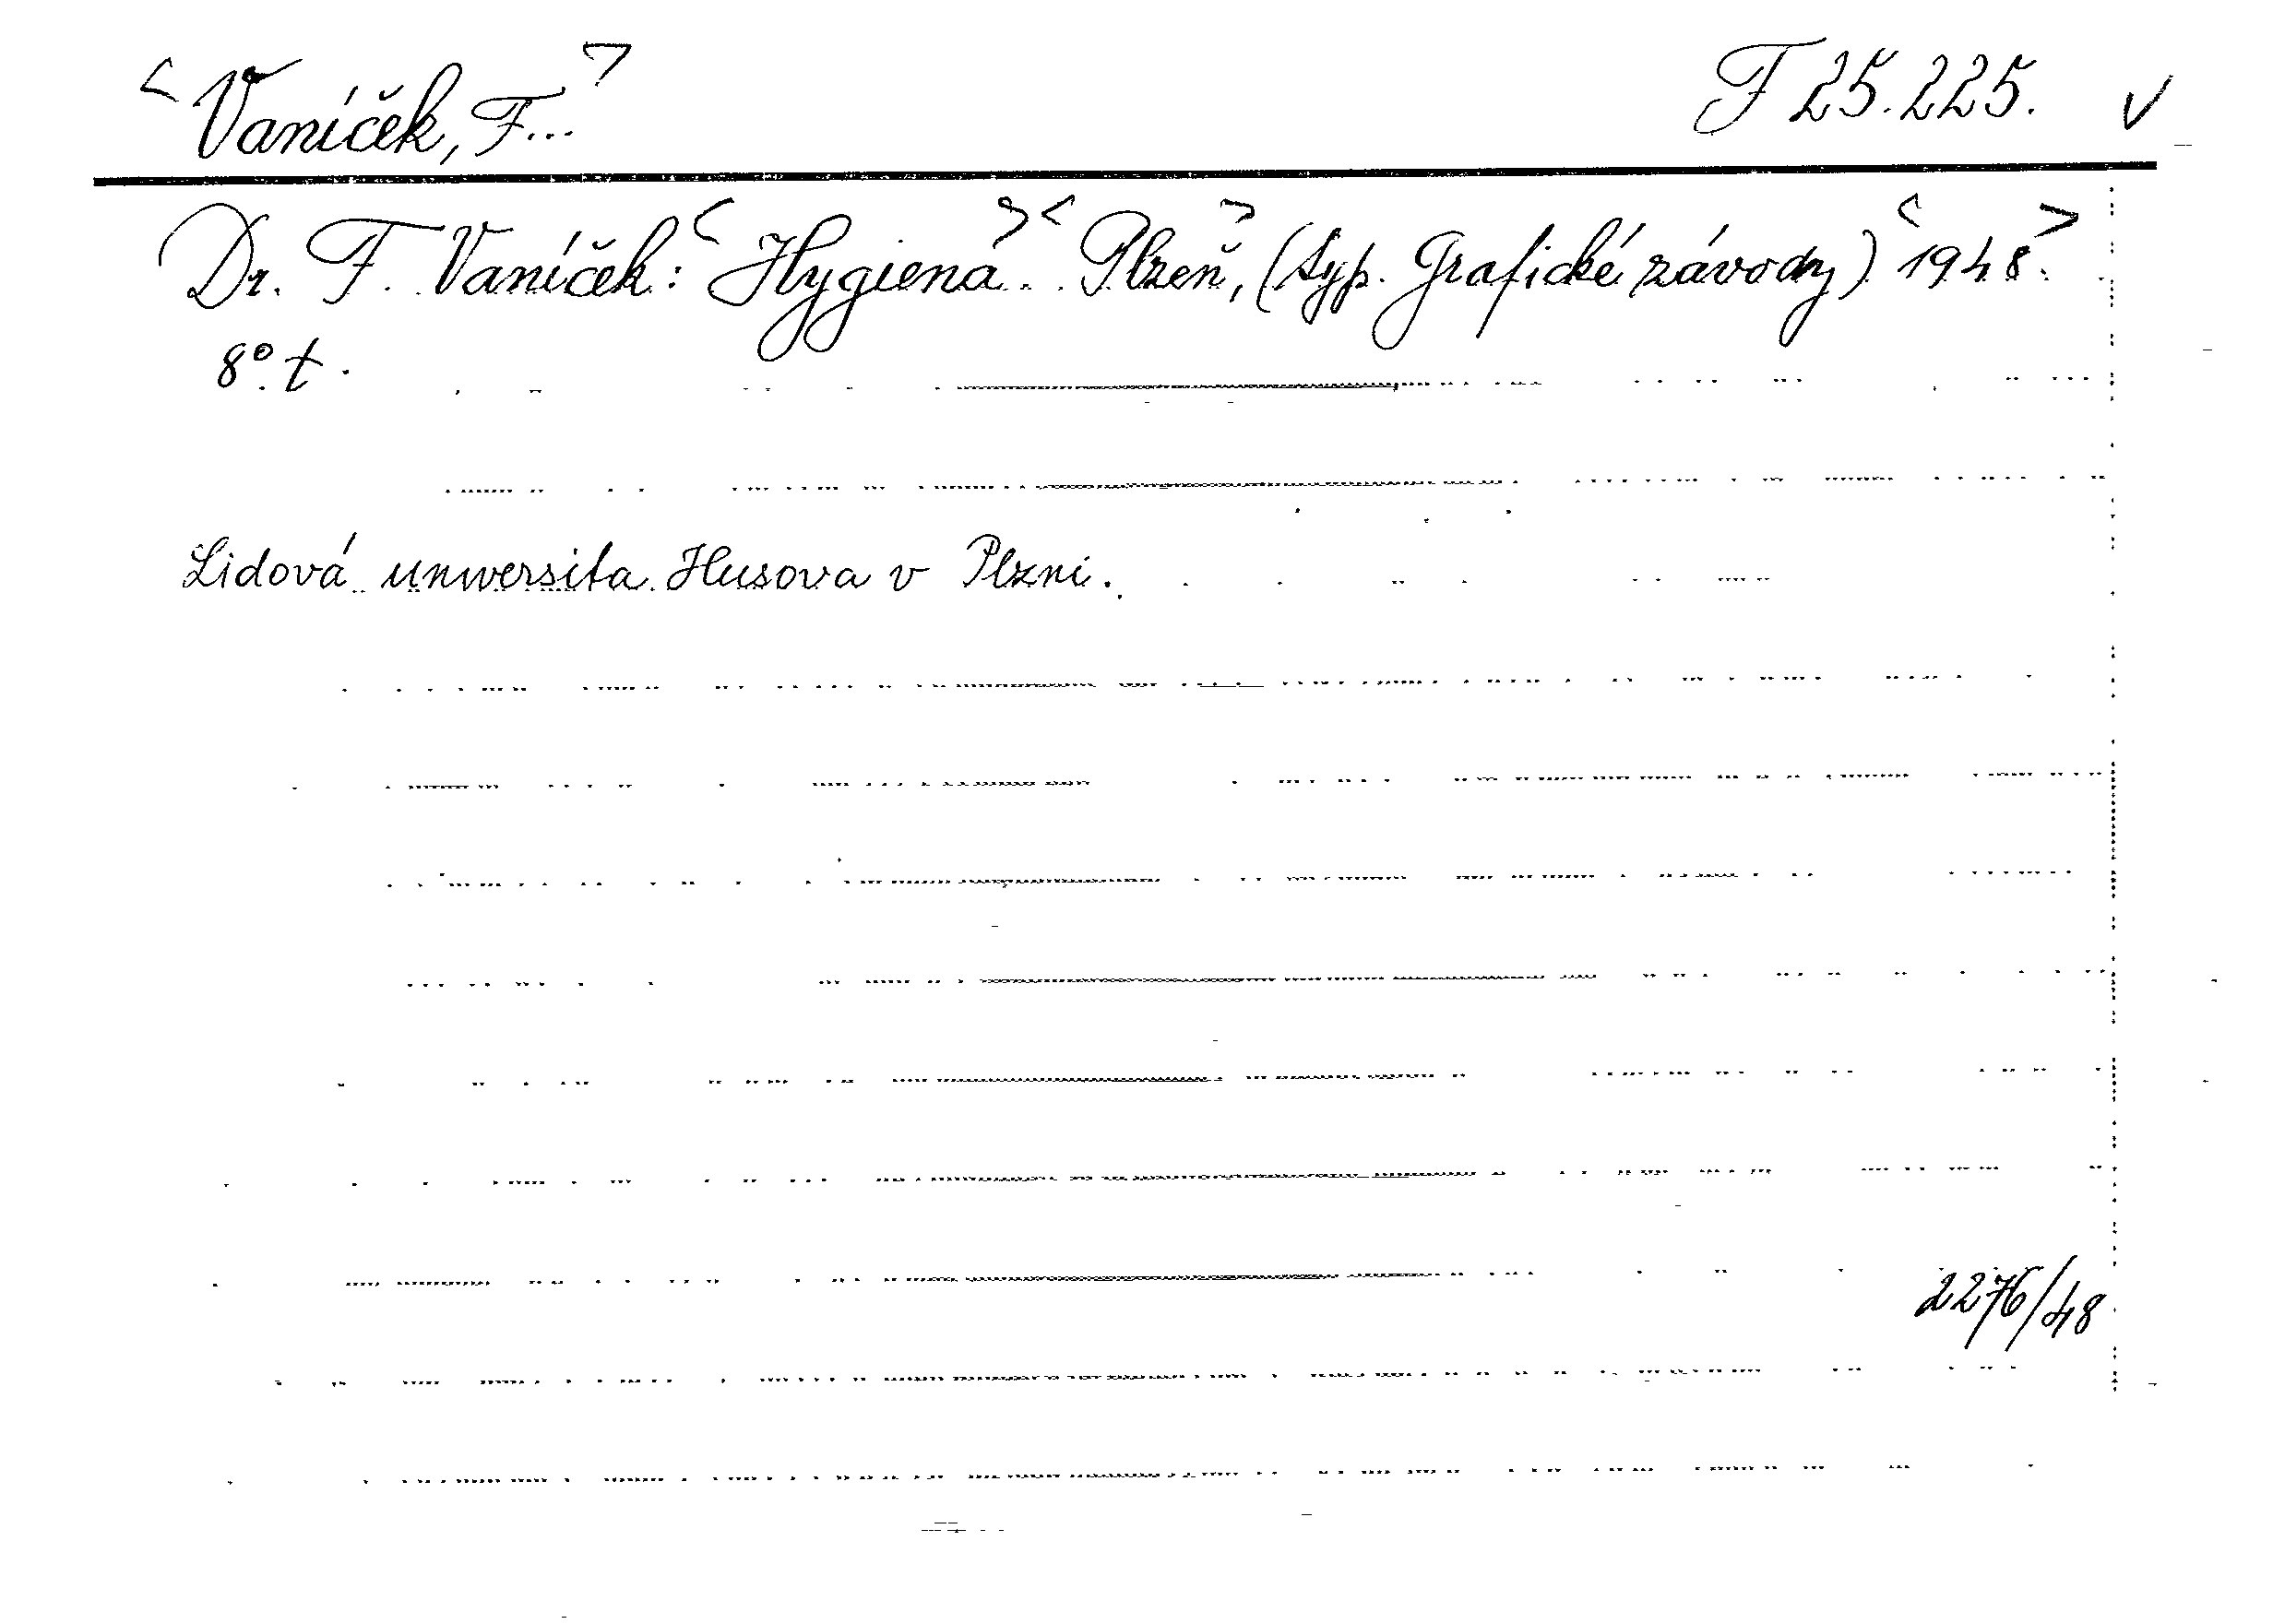 <Vaníček, F...> F 25.225. v
Dr. F. Vaníček: <Hygiena> <Plzeň>, (typ. Grafické závody) <1948>.
8° t.
Lidová universita Husova v Plzni.
2276/48